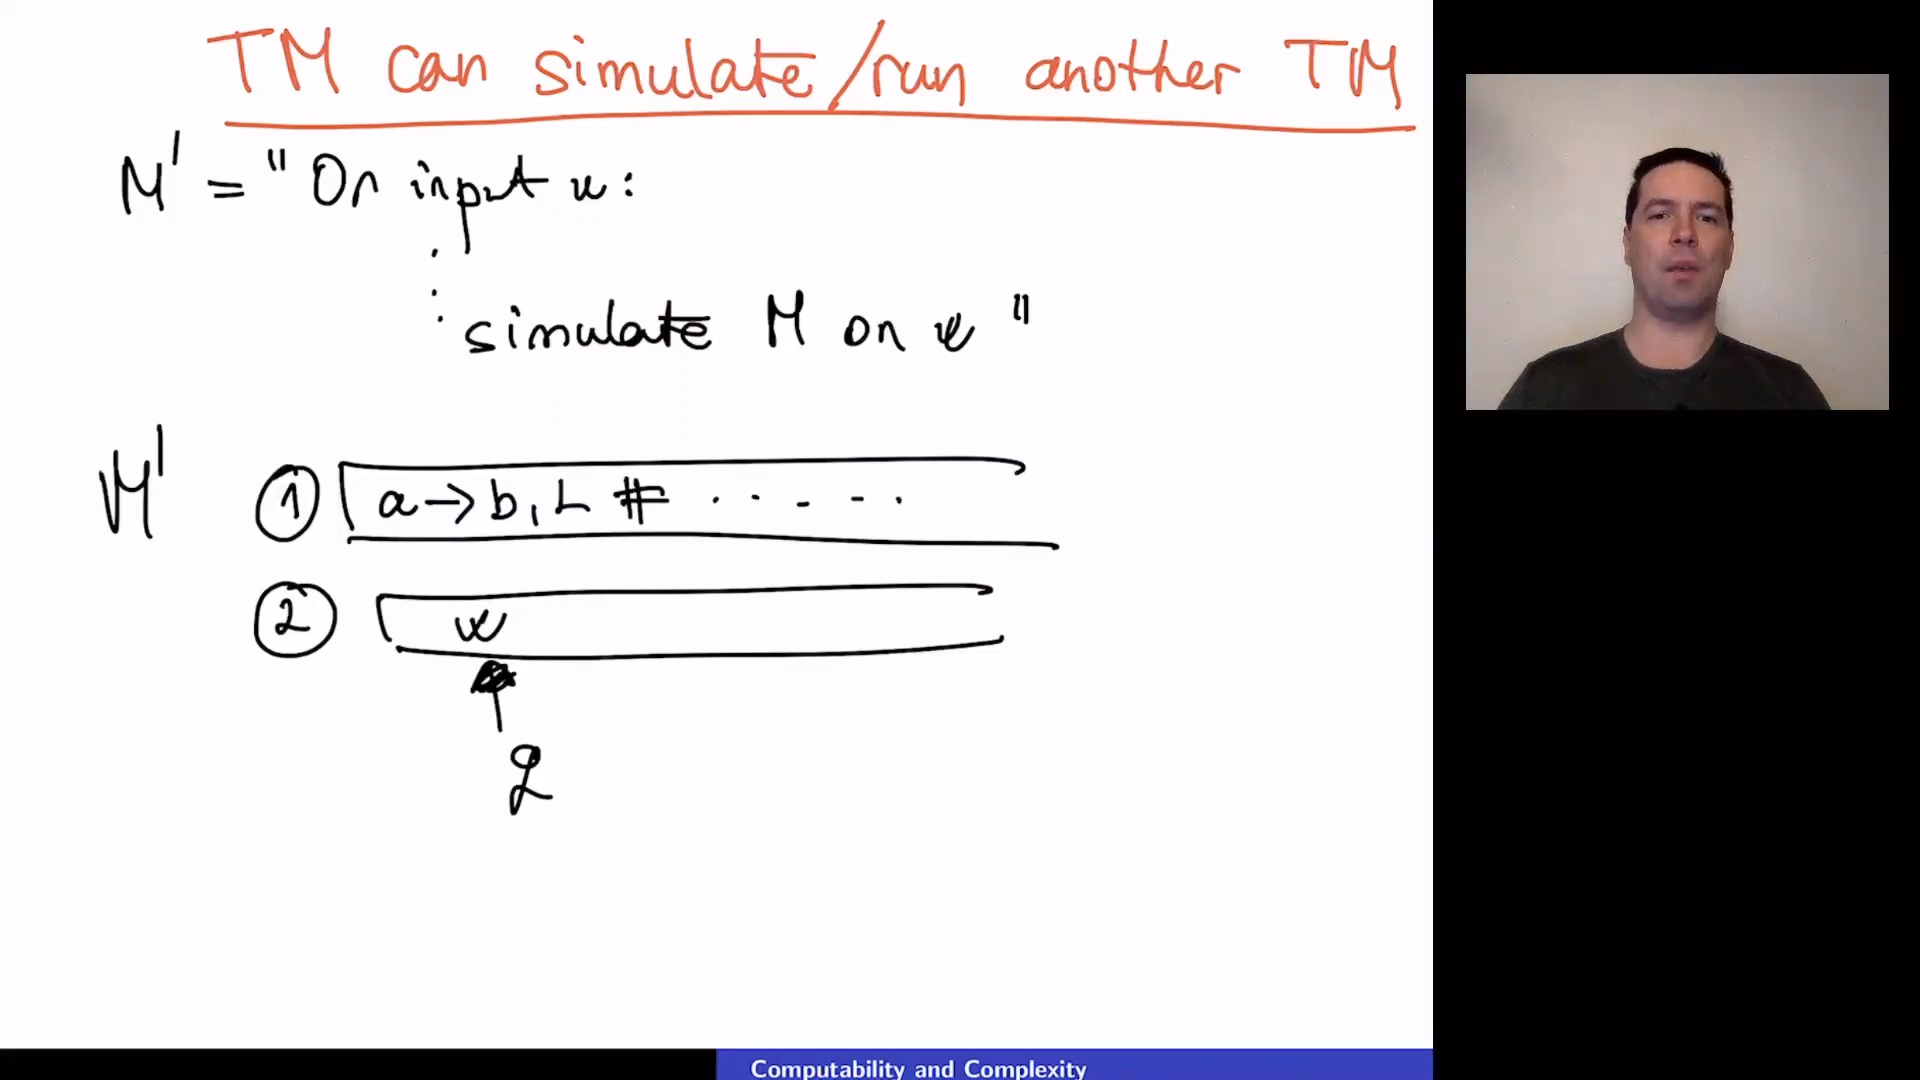 TM can simulate/run another TM
M' = " On input w:
simulate M on w "
M' ① a → b, L # . . . . .
② w
q
Computability and Complexity